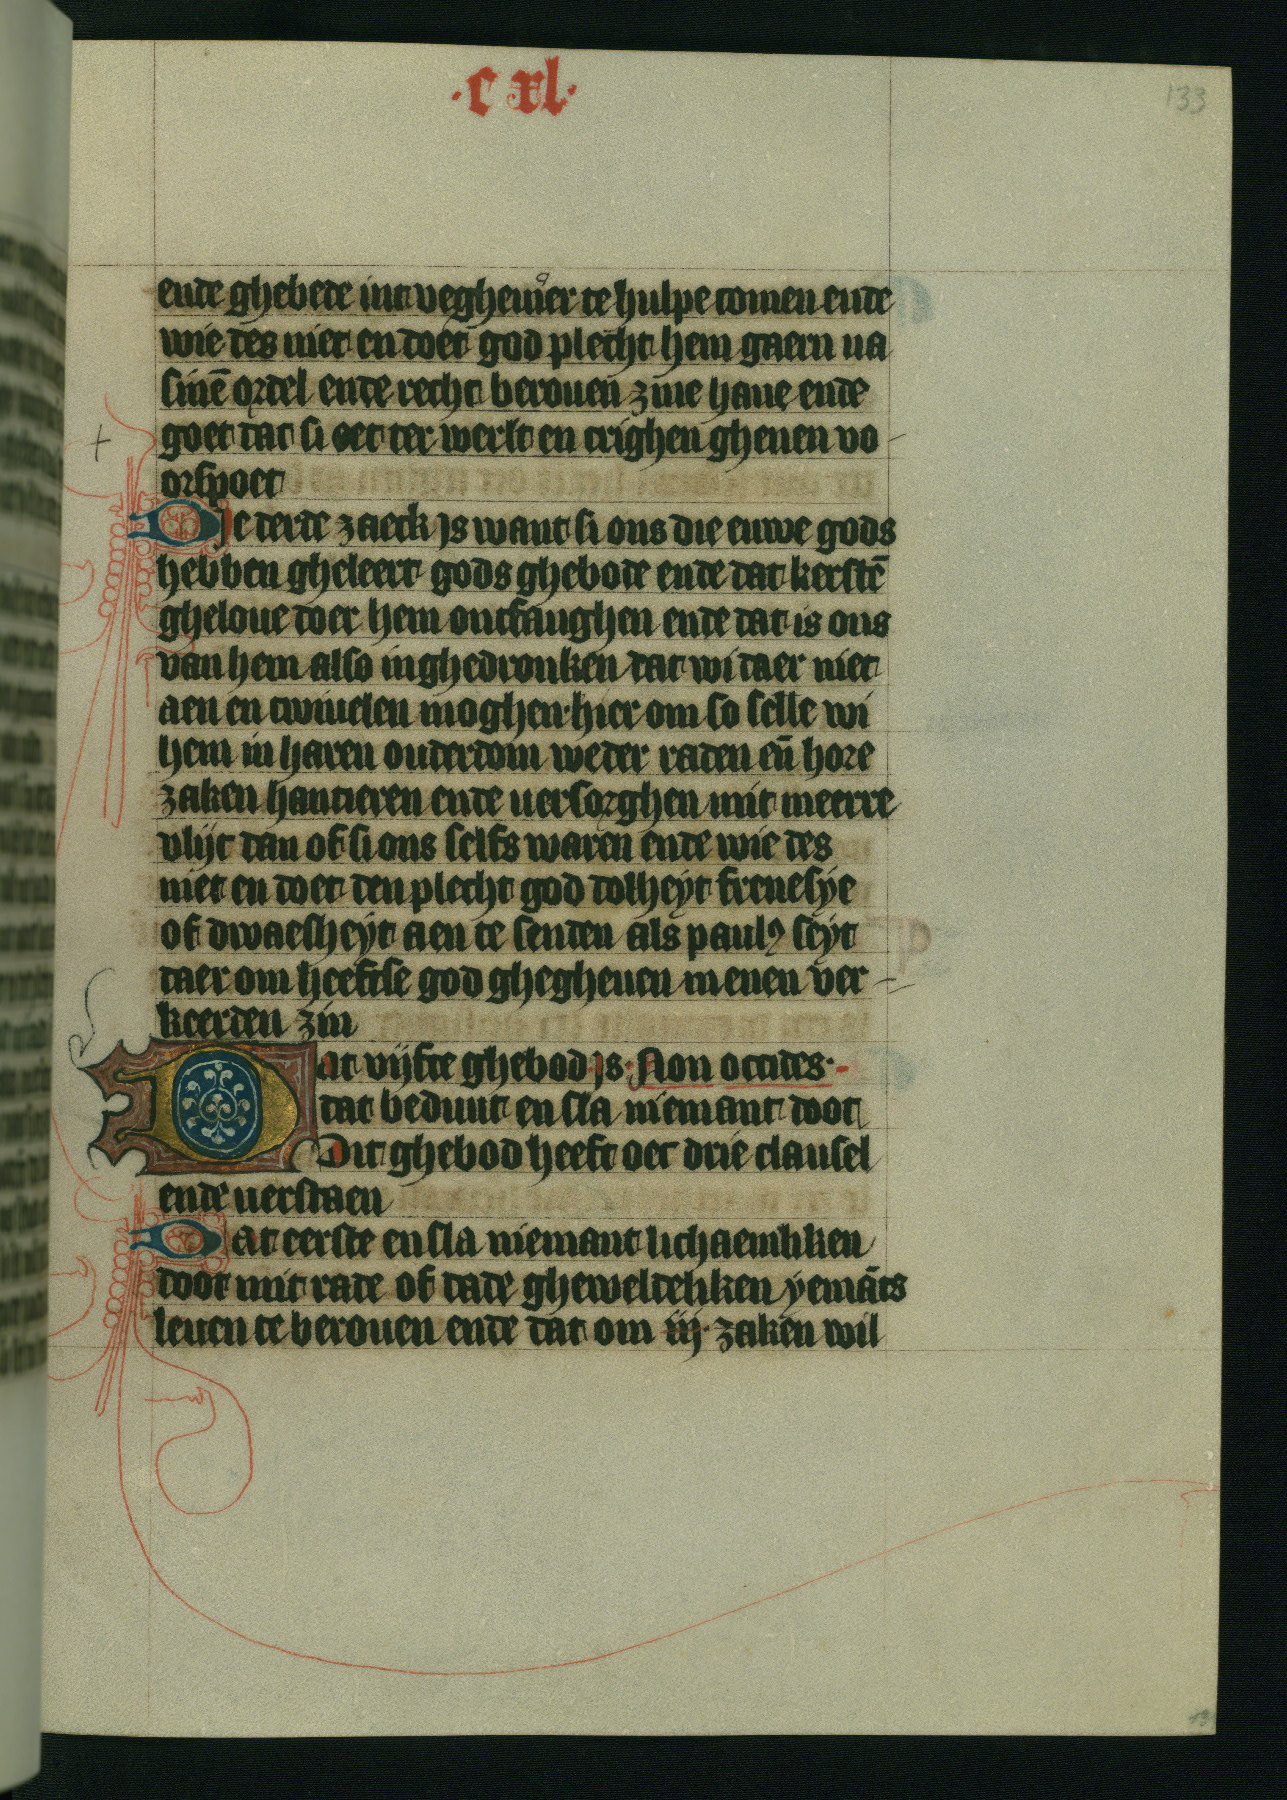 ·c xl·
133
ende ghebede int veghevuer te hulpe comen ende
wie des niet en doet god plecht hem gaern va
sinē ordel ende recht berouen zine haue ende
goet dat si oec ter werlt en crighen ghenen vo
orspoet
Die derde zaeck is want si ons die euwe gods
hebben gheleert gods ghebode ende dat kerstē
gheloue doer hem ontfanghen ende dat is ons
van hem also inghedronken dat wi daer niet
aen en twiuelen moghen·hier om so selle wi
hem in haren ouderdom weder raden eñ hore
zaken hantieren ende versorghen mit meerre
vlijt dan of si ons selfs waren ende wie des
niet en doet den plecht god dolheyt frenesye
of dwaesheyt aen te senden als paulꝰ seyt
daer om heeftse god ghegheuen in enen ver
keerden zin
Dat vijfte ghebod is· Non occides·
dat beduut en sla niemant doot
Dit ghebod heeft oec drie clausel
ende verstaen
Dat eerste en sla niemant lichaemliken
doot mit rade of dade gheweldeliken yemāts
leuen te berouen ende dat om iij· zaken wil